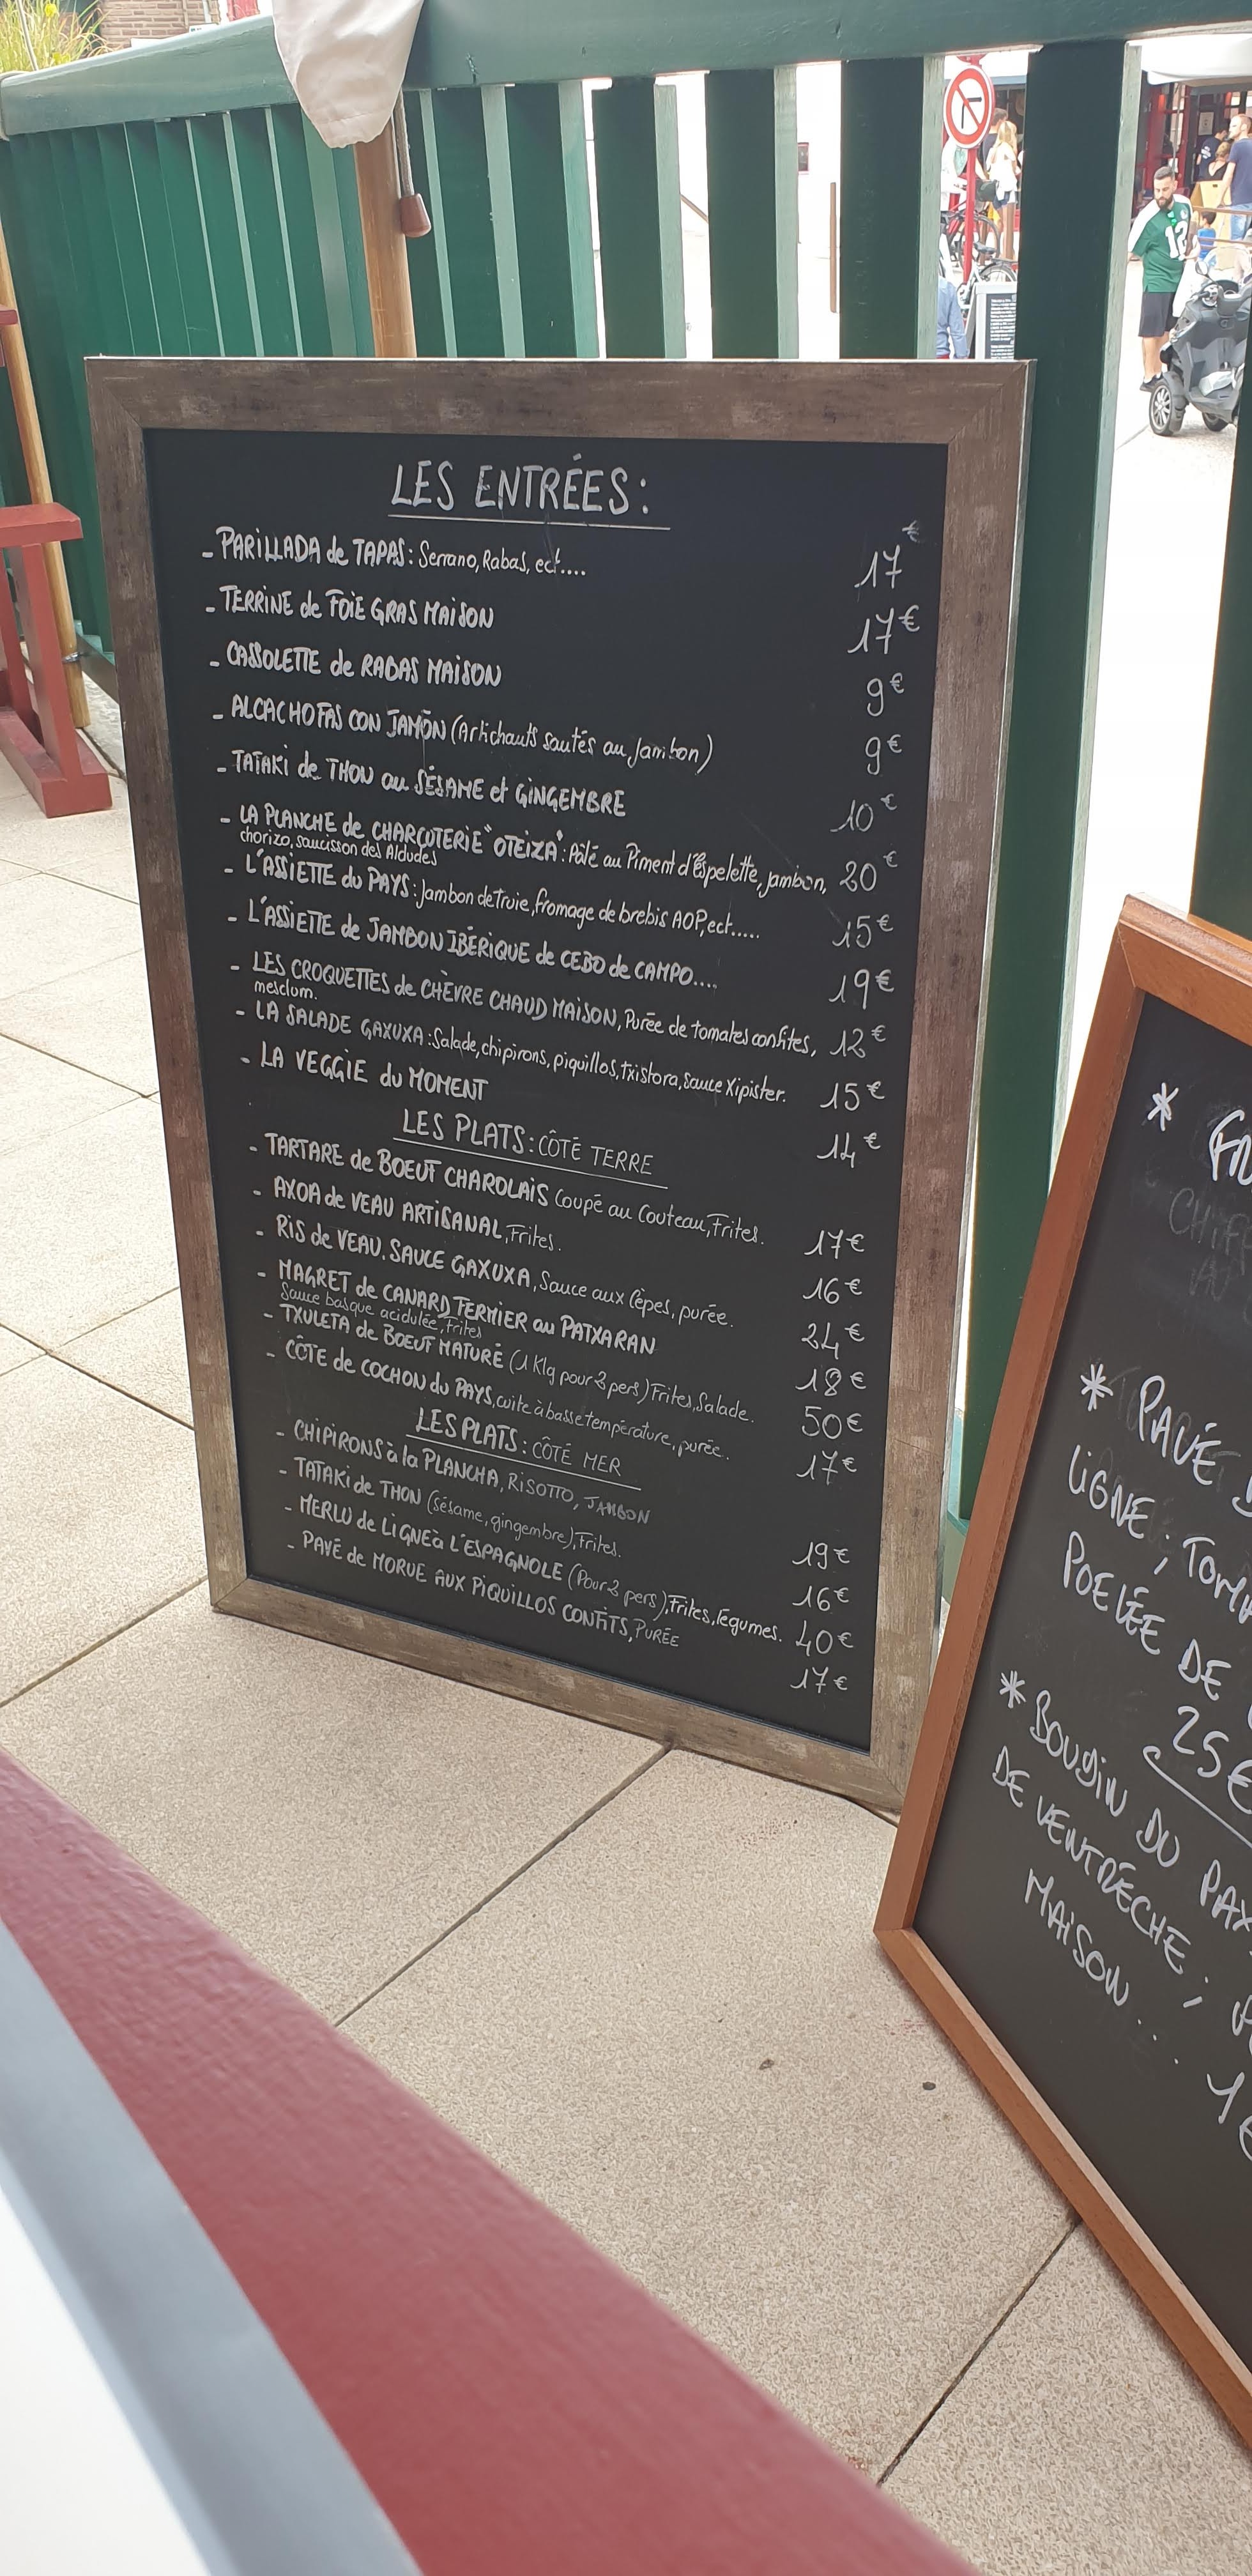 LES ENTRÉES:
- PARILLADA de TAPAS: Serrano, Rabas, ect.... 17€
- TERRINE de FOIE GRAS MAISON 17€
- CASSOLETTE de RABAS MAISON 9€
- ALCACHOFAS CON JAMÓN (Artichauts sautés au Jambon) 9€
- TATAKI de THON au SÉSAME et GINGEMBRE 10€
- LA PLANCHE de CHARCUTERIE "OTEIZA": Pâté au Piment d'Espelette, jambon, 20€
chorizo, saucisson des Aldudes
- L'ASSIETTE du PAYS: Jambon de Truie, fromage de brebis AOP, ect..... 15€
- L'ASSIETTE de JAMBON IBÉRIQUE de CEBO de CAMPO.... 19€
- LES CROQUETTES de CHÈVRE CHAUD MAISON, Purée de tomates confites, 12€
mesclum.
- LA SALADE GAXUXA: Salade, chipirons, piquillos, txistora, sauce Xipister. 15€
- LA VEGGIE du MOMENT 14€
LES PLATS: CÔTÉ TERRE
- TARTARE de BOEUF CHAROLAIS Coupé au Couteau, Frites. 17€
- AXOA de VEAU ARTISANAL, Frites. 16€
- RIS de VEAU. SAUCE GAXUXA, Sauce aux Cèpes, purée. 24€
- MAGRET de CANARD FERMIER au PATXARAN 18€
Sauce basque acidulée, Frites
- TXULETA de BOEUF MATURÉ (1 Klg pour 2 pers) Frites, Salade. 50€
- CÔTE de COCHON du PAYS, cuite à basse température, purée. 17€
LES PLATS: CÔTÉ MER
- CHIPIRONS à la PLANCHA, RISOTTO, JAMBON 19€
- TATAKI de THON (sésame, gingembre), Frites. 16€
- MERLU de LIGNE à L'ESPAGNOLE (Pour 2 pers), Frites, légumes. 40€
- PAVÉ de MORUE AUX PIQUILLOS CONFITS, PURÉE 17€
*
* PAVÉ
LIGNE;
POELÉE DE
25€
* BOUDIN DU
DE VENTRÈCHE;
MAISON...
12